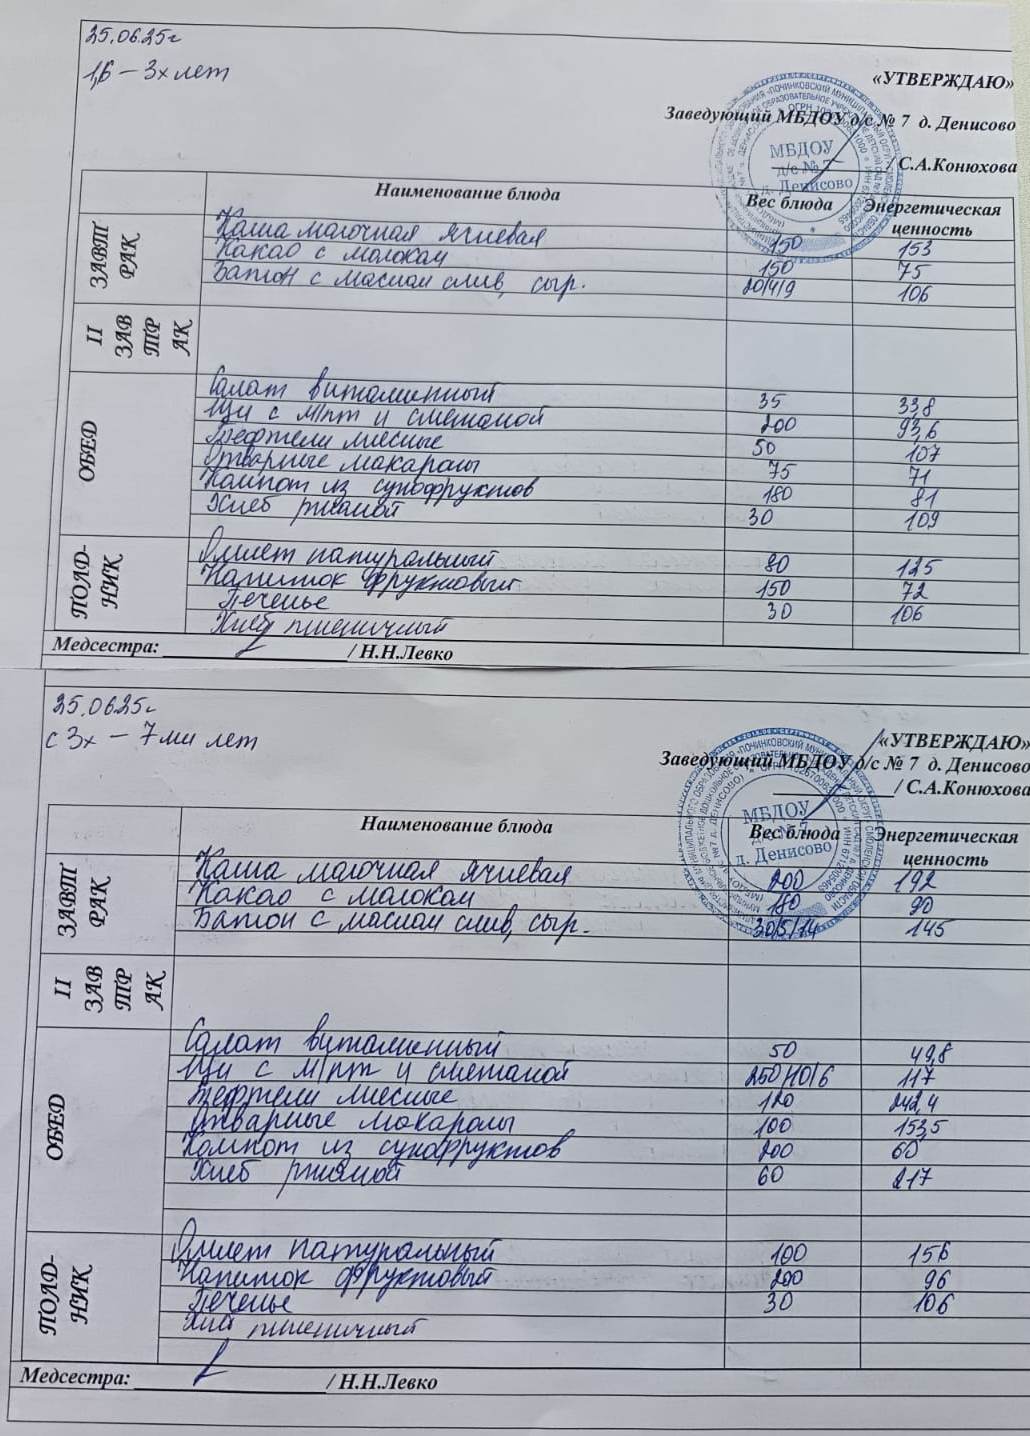 25.06.25г
1,6 – 3х лет
«УТВЕРЖДАЮ»
Заведующий МБДОУ д/с № 7 д. Денисово
/ С.А.Конюхова
МБДОУ
д/с № 7
д. Денисово
Наименование блюда Вес блюда Энергетическая ценность
ЗАВТРАК
Каша молочная ячневая 150 153
Какао с молоком 150 75
Батон с маслом слив, сыр. 20/4/9 106
II ЗАВТРАК
ОБЕД
Салат витаминный 35 33,8
Щи с м/пт и сметаной 200 93,6
Тефтели мясные 50 107
Отварные макароны 75 71
Компот из сухофруктов 180 81
Хлеб ржаной 30 109
ПОЛДНИК
Омлет натуральный 80 125
Напиток фруктовый 150 72
Печенье 30 106
Хлеб пшеничный
Медсестра: / Н.Н.Левко
25.06.25г
с 3х – 7ми лет
«УТВЕРЖДАЮ»
Заведующий МБДОУ д/с № 7 д. Денисово
/ С.А.Конюхова
МБДОУ
д/с № 7
д. Денисово
Наименование блюда Вес блюда Энергетическая ценность
ЗАВТРАК
Каша молочная ячневая 200 192
Какао с молоком 180 90
Батон с маслом слив, сыр. 30/5/14 145
II ЗАВТРАК
ОБЕД
Салат витаминный 50 49,8
Щи с м/пт и сметаной 250/10/6 117
Тефтели мясные 120 242,4
Отварные макароны 100 153,5
Компот из сухофруктов 200 60
Хлеб ржаной 60 217
ПОЛДНИК
Омлет натуральный 100 156
Напиток фруктовый 200 96
Печенье 30 106
Хлеб пшеничный
Медсестра: / Н.Н.Левко